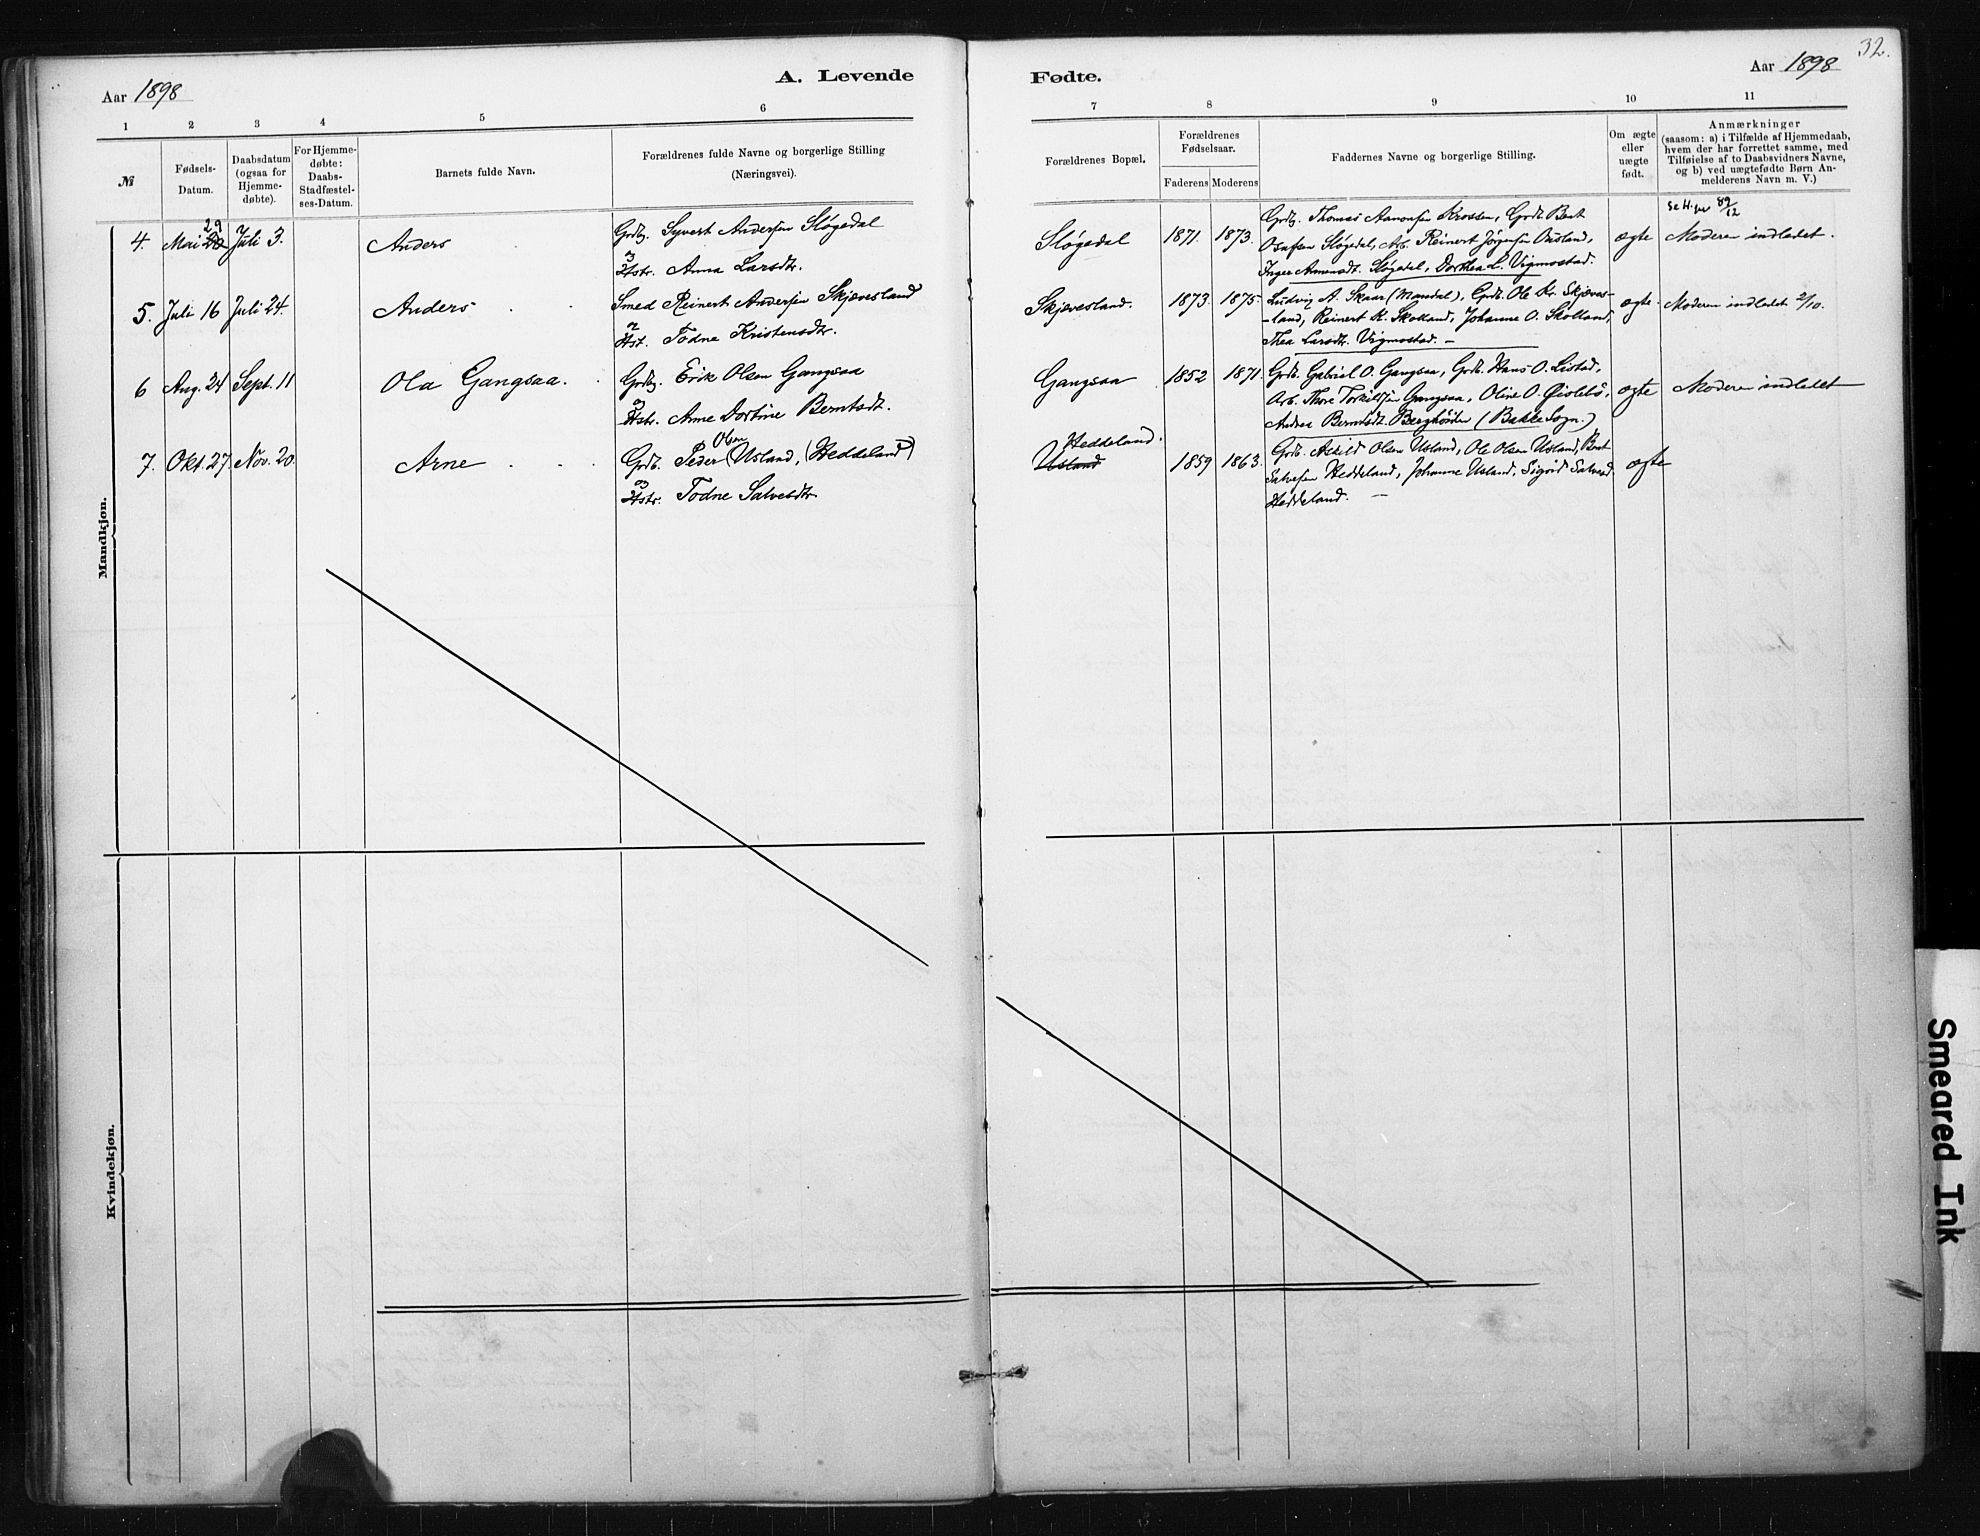 32.
Aar 1898
A. Levende
Fødte.
Aar 1898
1 2 3 4 5 6 7 8 9 10 11
№
Fødsels-Datum.
Daabsdatum (ogsaa for Hjemme-døbte).
For Hjemme-døbte: Daabs-Stadfæstel-ses-Datum.
Barnets fulde Navn.
Forældrenes fulde Navne og borgerlige Stilling (Næringsvei).
Forældrenes Bopæl.
Forældrenes Fødselsaar.
Faderens Moderens
Faddernes Navne og borgerlige Stilling.
Om ægte eller uægte født.
Anmærkninger
(saasom: a) i Tilfælde af Hjemmedaab,
hvem der har forrettet samme, med
Tilføielse af to Daabsvidners Navne,
og b) ved uægtefødte Børn An-
melderens Navn m. V.)
Mandkjøn.
4 Mai 29 Juli 3. Anders
Grdb. Syvert Andersen Sløgedal
Hstr. Anna Larsdtr.
Sløgedal 1871. 1873.
Grdb. Thomas Aanonsen Krossen, Grdb. Bent
Osufsen Sløgedal, Arb. Reinert Jørgensen Ousland,
Inger Aanensdt. Sløgedal, Dorthea L. Vigmostad.
ægte
Moderen indledet.
5. Juli 16 Juli 24. Anders
Smed Reinert Andersen Skjævesland
Hst. Todne Kristensdtr.
Skjævesland. 1873. 1875.
Ludvig A. Skaar (Mandal), Grdb. Ole Kr. Skjæves-
-land, Reinert K. Skolland, Johanne O. Skolland,
Thea Larsdtr. Vigmostad. -
ægte.
Moderen indledet 2/10.
6 Aug. 24 Sept. 11 Ola Gangsaa.
Grdb. Erik Olsen Gangsaa
Hstr. Anne Dortine Berntsdt.
Gangsaa 1852 1871.
Grdb. Gabriel O. Gangsaa, Grdb. Hans O. Listad,
Arb. Thore Torkildsen Gangsaa, Oline O. Øislebø,
Andrea Berntsdt. (Bakke Sogn.)
ægte
Moderen indledet
7. Okt. 27. Nov. 20. Arne
Grdb. Peder Olsen (Usland, (Heddeland)
Hstr. Todne Salvesdtr.
Heddeland.
Usland 1859 1863.
Grdb. Askild Olsen Usland, Ole Olsen Usland, Bent
Salvesen Heddeland, Johanne Usland, Sigrid Salvesd.
Heddeland. -
ægte
Kvindekjøn.
Smeared Ink